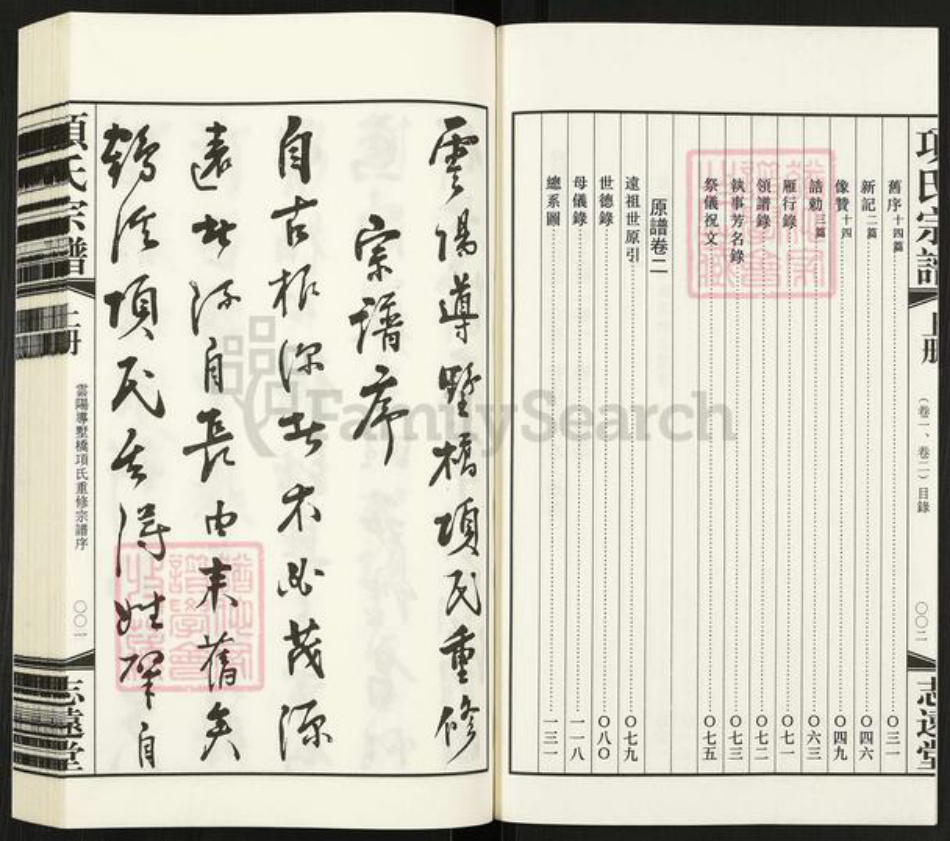 項氏宗譜 上册 （卷一、卷二）目錄 〇〇二 志遠堂
舊序十四篇 〇三一
新記二篇 〇四六
像贊十四 〇四九
誥勅三篇 〇六三
雁行錄 〇七一
領譜錄 〇七二
執事芳名錄 〇七三
祭儀祝文 〇七五
原譜卷二
遠祖世原引 〇七九
世德錄 〇八〇
母儀錄 一一八
總系圖 一三一
雲陽導墅橋項氏重修
宗譜序
自古根深者木必茂源
遠者流自長由来舊矣
鶴溪項氏其得姓肇自
項氏宗譜 上册 雲陽導墅橋項氏重修宗譜序 〇〇一 志遠堂
FamilySearch